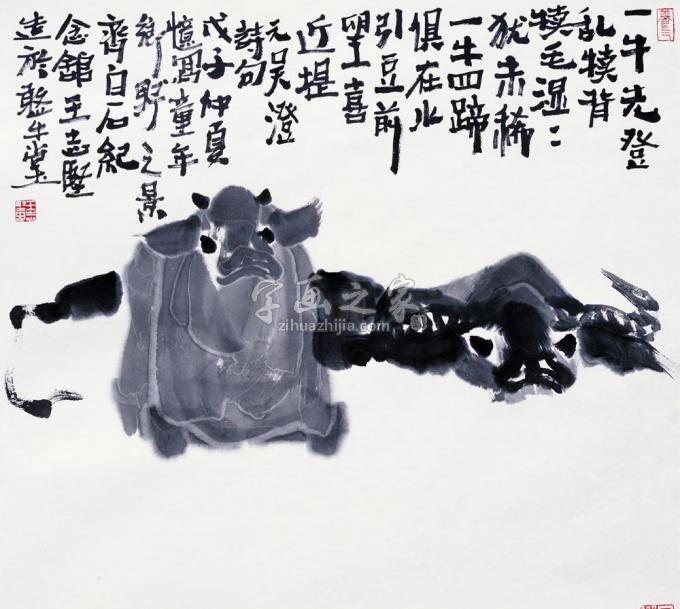 一牛先登
乱犊背
犊毛湿〻
犹未稀
一牛四蹄
俱在水
引豆前
望喜
近堤
元吴澄
詩句
戊子仲夏
憶寫童年
鄉野之景
齊白石紀
念舘王志堅
造於憨牛堂
字画之家
zihuazhijia.com